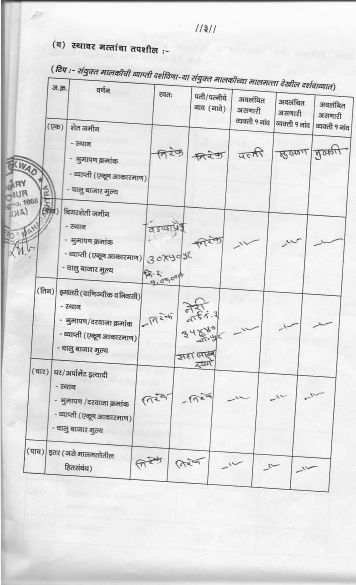 //३//
(ब) स्थावर मत्तांचा तपशील :-
(टिप :- संयुक्त मालकीची व्याप्ती दर्शविणा-या संयुक्त मालकीच्या मालमत्ता देखील दर्शवाव्यात)
अ.क्र. वर्णन स्वतः पती/पत्नीचे नाव (नावे) अवलंबित असणारी व्यक्ती १ नांव अवलंबित असणारी व्यक्ती १ नांव अवलंबित असणारी व्यक्ती १ नांव
(एक) शेत जमीन
- स्थान
- भुमापण क्रमांक निरंक निरंक पत्नी मुलगा मुलगी
- व्याप्ती (एकूण आकारमाण)
- चालु बाजार मुल्य
बिगरशेती जमीन
- स्थान
- भुमापण क्रमांक निरंक -"- -"- -"-
- व्याप्ती (एकूण आकारमाण) ३०x५०फुट
- चालु बाजार मुल्य
(तिन) इमारती (वाणिज्यीक व निवासी)
- स्थान नेरी
- भुमापण/दरवाजा क्रमांक -निरंक वार्ड नं.२ -"- -"- -"-
- व्याप्ती (एकूण आकारमाण) ३५x४०
- चालु बाजार मुल्य सहा लाख
(चार) घर/अपार्मेंट इत्यादी
- स्थान
- भुमापण /दरवाजा क्रमांक निरंक -निरंक -"- -"- -"-
- व्याप्ती (एकूण आकारमाण)
- चालु बाजार मुल्य
(पाच) इतर (जसे मालमत्तेतील हितसंबंध) निरंक निरंक -"- -"- -"-